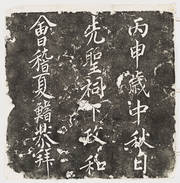 丙申歲中秋日
先聖祠下政和
會稽夏鱃恭拜